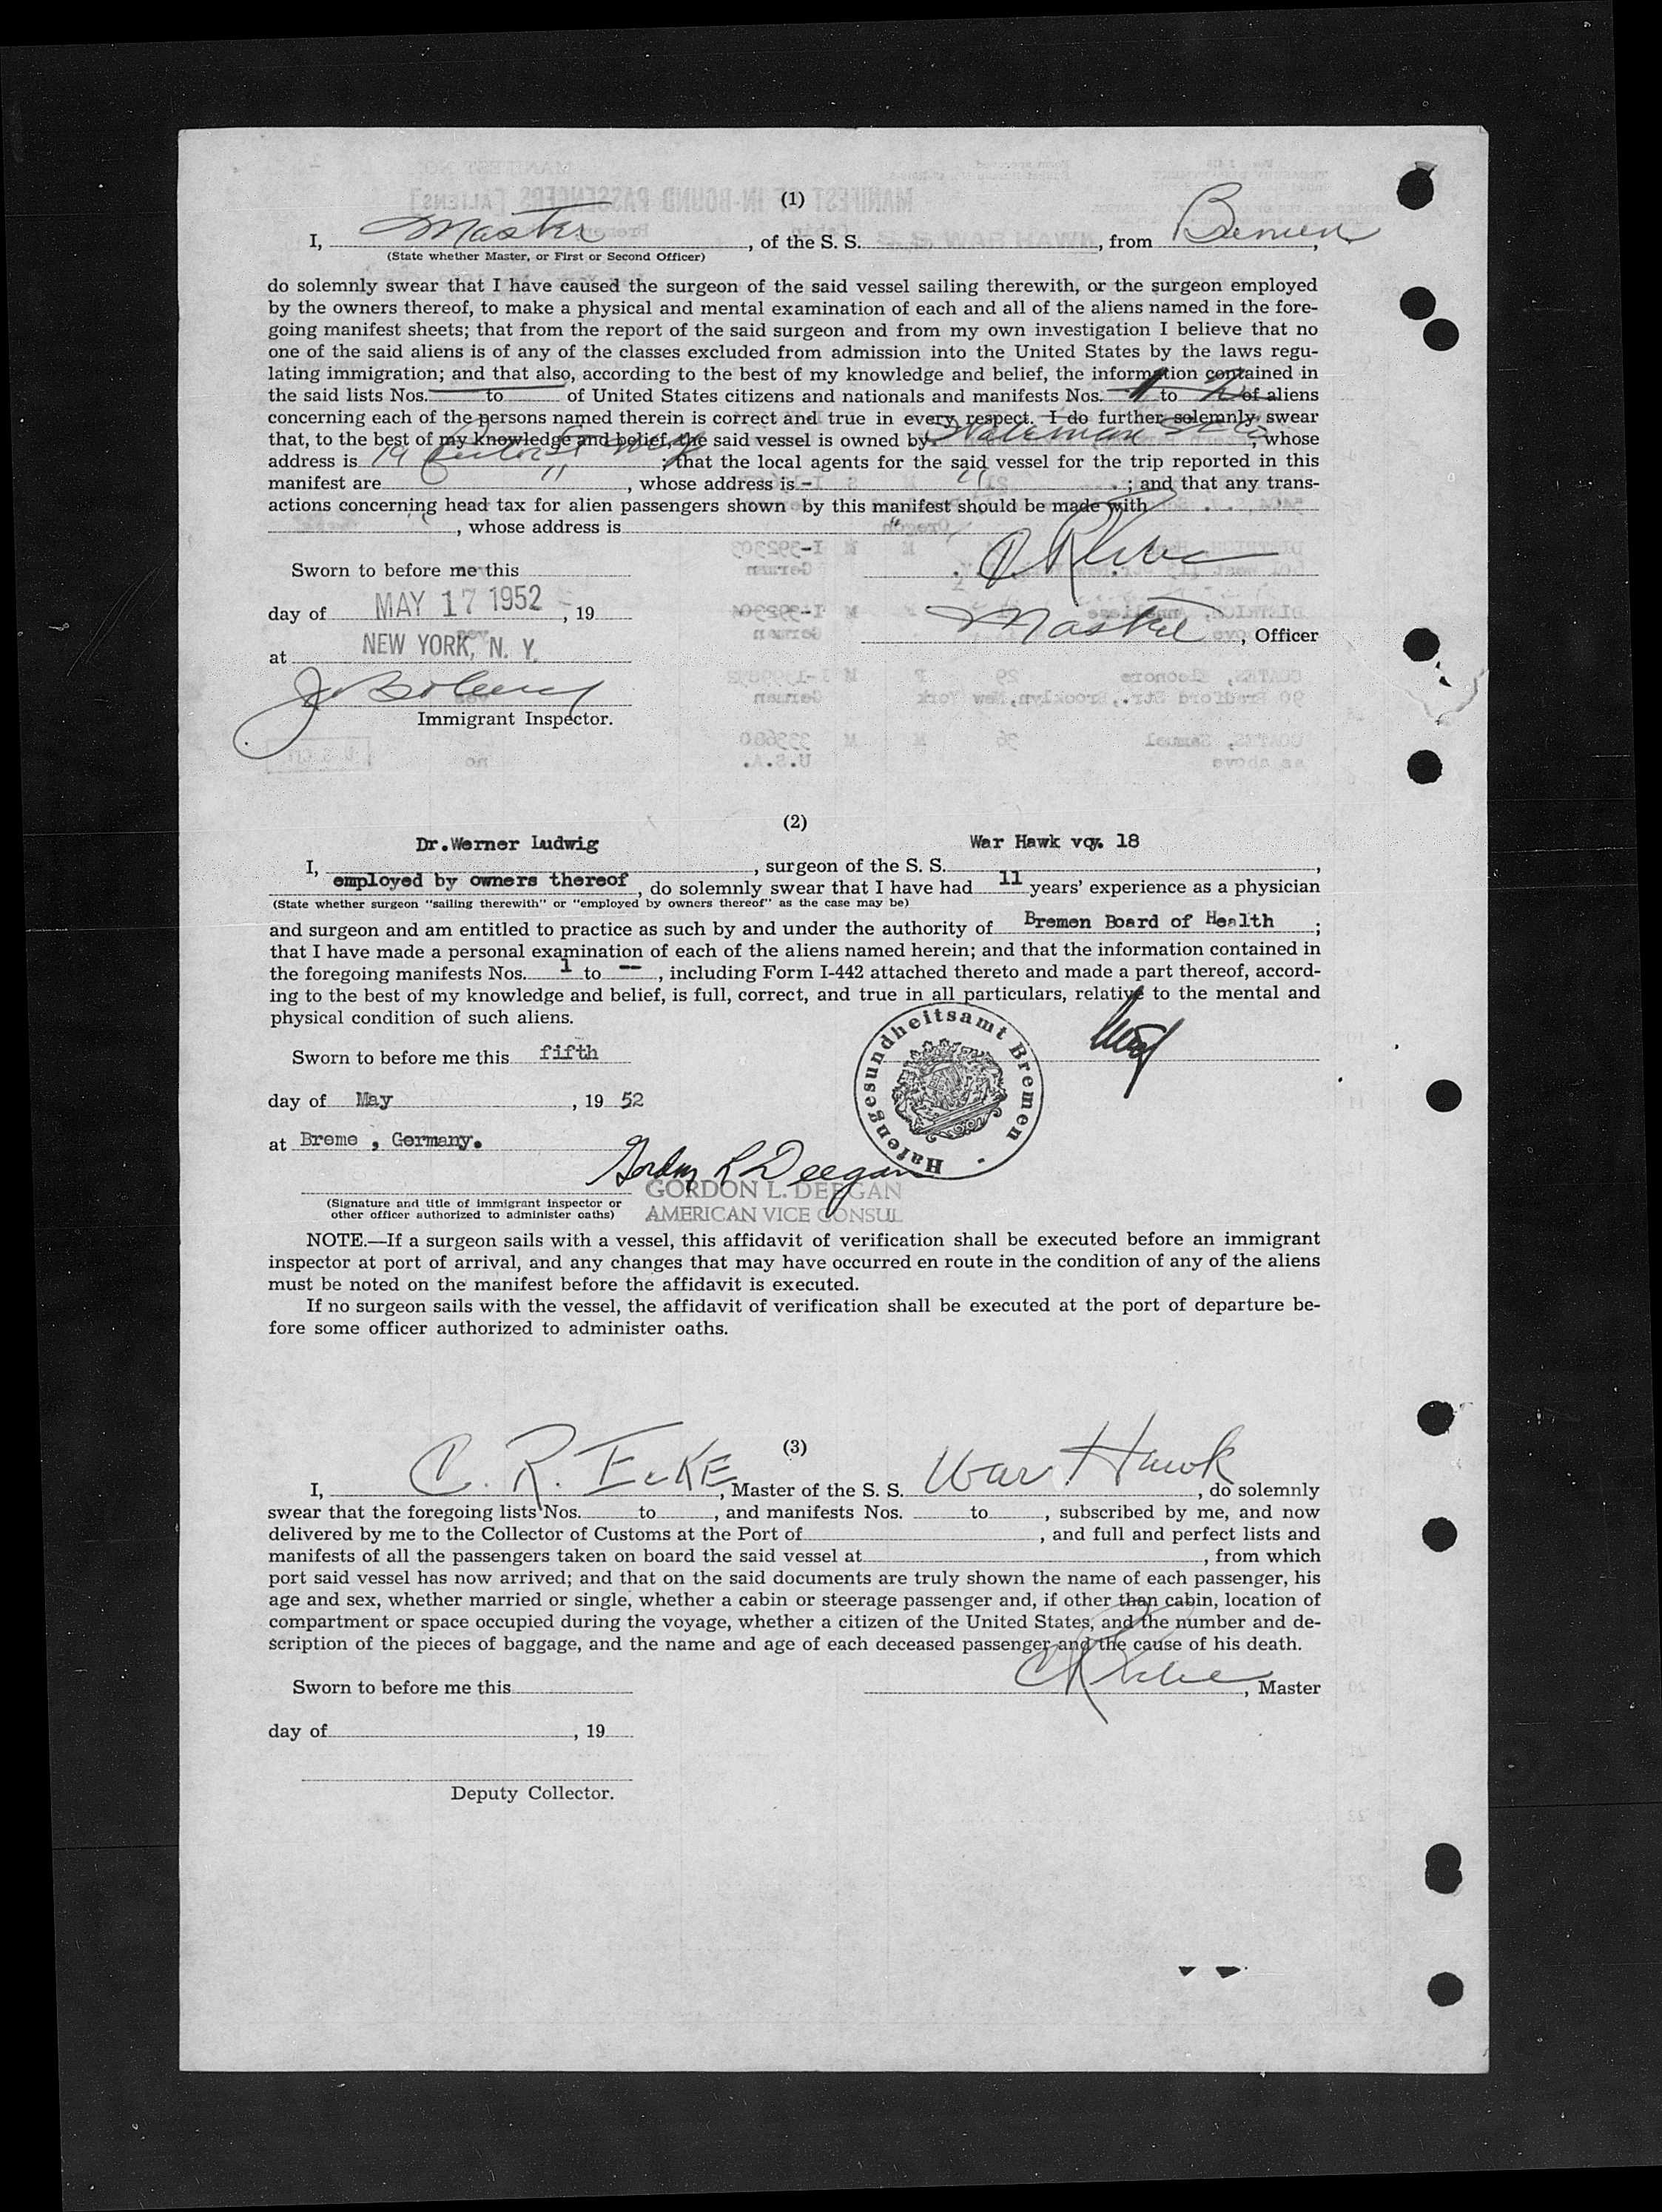 (1)
I, Master, of the S. S. , from Bremen,
(State whether Master, or First or Second Officer)
do solemnly swear that I have caused the surgeon of the said vessel sailing therewith, or the surgeon employed
by the owners thereof, to make a physical and mental examination of each and all of the aliens named in the fore-
going manifest sheets; that from the report of the said surgeon and from my own investigation I believe that no
one of the said aliens is of any of the classes excluded from admission into the United States by the laws regu-
lating immigration; and that also, according to the best of my knowledge and belief, the information contained in
the said lists Nos. to of United States citizens and nationals and manifests Nos. 1 to of aliens
concerning each of the persons named therein is correct and true in every respect. I do further solemnly swear
that, to the best of my knowledge and belief, the said vessel is owned by Waterman SS Co, whose
address is 19 Rector St NYC; that the local agents for the said vessel for the trip reported in this
manifest are ", whose address is - "; and that any trans-
actions concerning head tax for alien passengers shown by this manifest should be made with
", whose address is "
Sworn to before me this
day of MAY 17 1952, 19
at NEW YORK, N. Y.
Master, Officer
Immigrant Inspector.
(2)
Dr.Werner Ludwig War Hawk voy. 18
I, , surgeon of the S. S. ,
employed by owners thereof, do solemnly swear that I have had 11 years' experience as a physician
(State whether surgeon "sailing therewith" or "employed by owners thereof" as the case may be)
and surgeon and am entitled to practice as such by and under the authority of Bremen Board of Health;
that I have made a personal examination of each of the aliens named herein; and that the information contained in
the foregoing manifests Nos. 1 to --, including Form I-442 attached thereto and made a part thereof, accord-
ing to the best of my knowledge and belief, is full, correct, and true in all particulars, relative to the mental and
physical condition of such aliens.
Hafengesundheitsamt Bremen
Sworn to before me this fifth
day of May, 19 52
at Breme , Germany.
Gordon L Deegan
GORDON L. DEEGAN
AMERICAN VICE CONSUL
(Signature and title of immigrant inspector or
other officer authorized to administer oaths)
NOTE.—If a surgeon sails with a vessel, this affidavit of verification shall be executed before an immigrant
inspector at port of arrival, and any changes that may have occurred en route in the condition of any of the aliens
must be noted on the manifest before the affidavit is executed.
If no surgeon sails with the vessel, the affidavit of verification shall be executed at the port of departure be-
fore some officer authorized to administer oaths.
(3)
I, C. R. EcKE, Master of the S. S. War Hawk, do solemnly
swear that the foregoing lists Nos. to , and manifests Nos. to , subscribed by me, and now
delivered by me to the Collector of Customs at the Port of , and full and perfect lists and
manifests of all the passengers taken on board the said vessel at , from which
port said vessel has now arrived; and that on the said documents are truly shown the name of each passenger, his
age and sex, whether married or single, whether a cabin or steerage passenger and, if other than cabin, location of
compartment or space occupied during the voyage, whether a citizen of the United States, and the number and de-
scription of the pieces of baggage, and the name and age of each deceased passenger and the cause of his death.
CR Ecke
Sworn to before me this , Master
day of , 19
Deputy Collector.